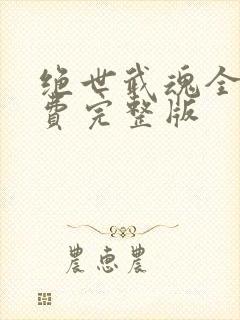 绝世武魂全
費完整版
農惠農